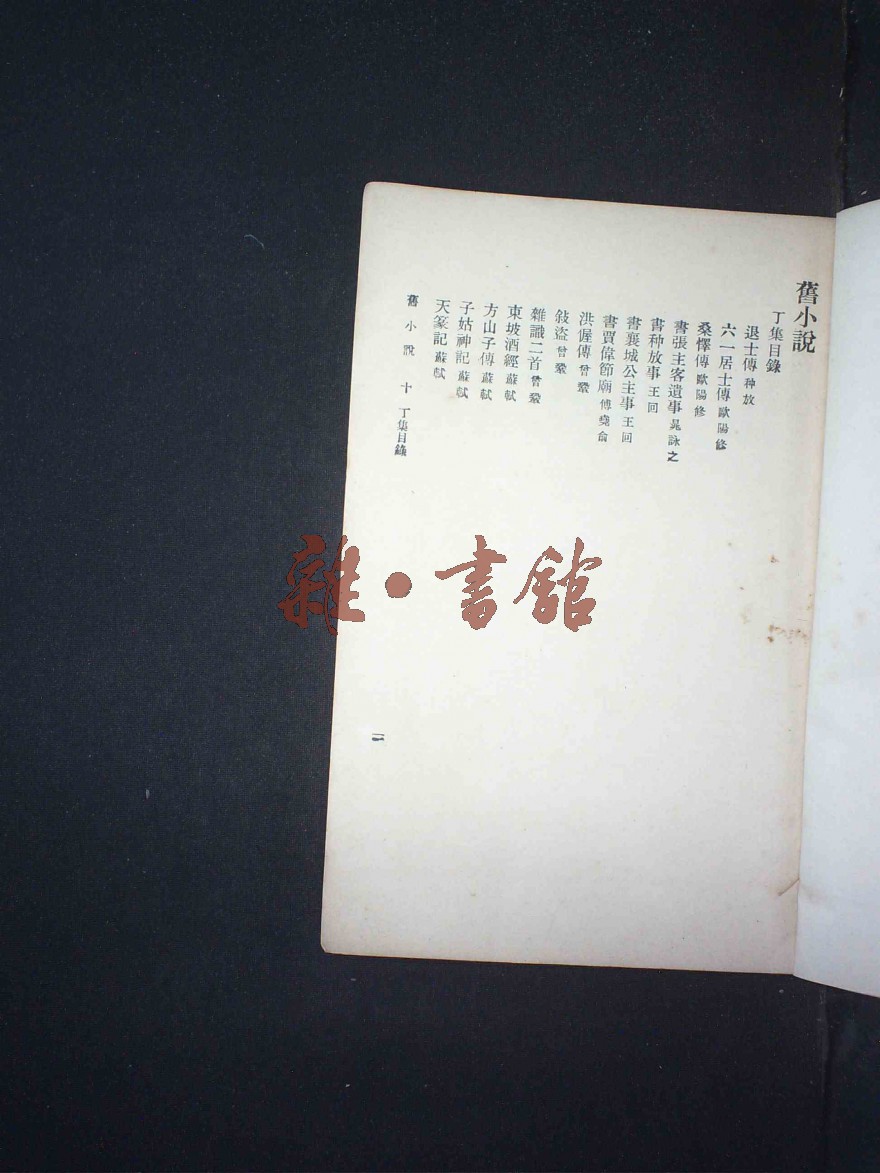 舊小說
丁集目錄
退士傳 种放
六一居士傳 歐陽修
桑懌傳 歐陽修
書張主客遺事 晁詠之
書种放事 王回
書襄城公主事 王回
書賈偉節廟 傅堯俞
洪偓傳 曾鞏
敍盜 曾鞏
雜識二首 曾鞏
東坡酒經 蘇軾
方山子傳 蘇軾
子姑神記 蘇軾
天篆記 蘇軾
舊小說 十 丁集目錄
一
雜·書館